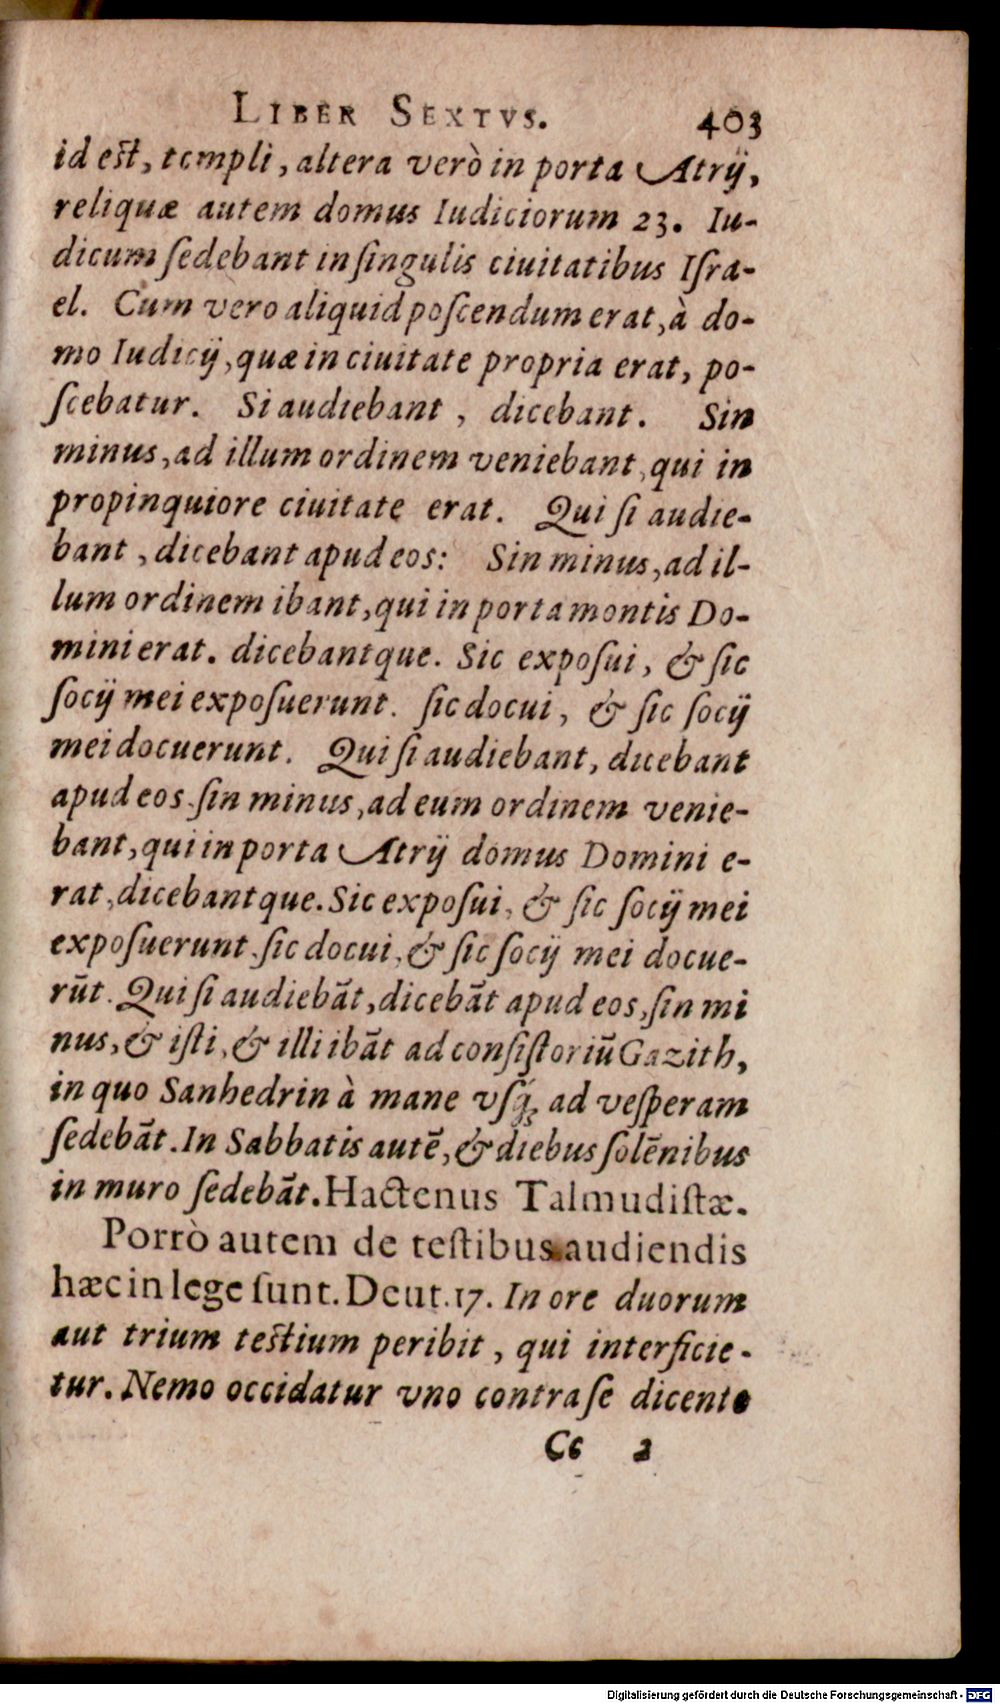 LIBER SEXTVS. 403
id est, templi, altera verò in porta Atrij,
reliquæ autem domus Iudiciorum 23. Iu-
dicum ſedebant in ſingulis ciuitatibus Iſra-
el. Cum vero aliquid poſcendum erat, à do-
mo Iudicij, quæ in ciuitate propria erat, po-
ſcebatur. Si audiebant, dicebant. Sin
minus, ad illum ordinem veniebant, qui in
propinquiore ciuitate erat. Qui ſi audie-
bant, dicebant apud eos: Sin minus, ad il-
lum ordinem ibant, qui in porta montis Do-
mini erat. dicebantque. Sic expoſui, & ſic
ſocij mei expoſuerunt. ſic docui, & ſic ſocij
mei docuerunt. Qui ſi audiebant, dicebant
apud eos. ſin minus, ad eum ordinem venie-
bant, qui in porta Atrij domus Domini e-
rat, dicebantque. Sic expoſui, & ſic ſocij mei
expoſuerunt. ſic docui, & ſic ſocij mei docue-
rũt. Qui ſi audiebãt, dicebãt apud eos, ſin mi
nus, & iſti, & illi ibãt ad conſiſtoriũ Gazith,
in quo Sanhedrin à mane vſq́; ad veſperam
ſedebãt. In Sabbatis autẽ, & diebus ſolẽnibus
in muro ſedebãt. Hactenus Talmudiſtæ.
Porrò autem de teſtibus audiendis
hæc in lege ſunt. Deut. 17. In ore duorum
aut trium teſtium peribit, qui interficie-
tur. Nemo occidatur vno contra ſe dicente
Cc 2
Digitalisierung gefördert durch die Deutsche Forschungsgemeinschaft - DFG